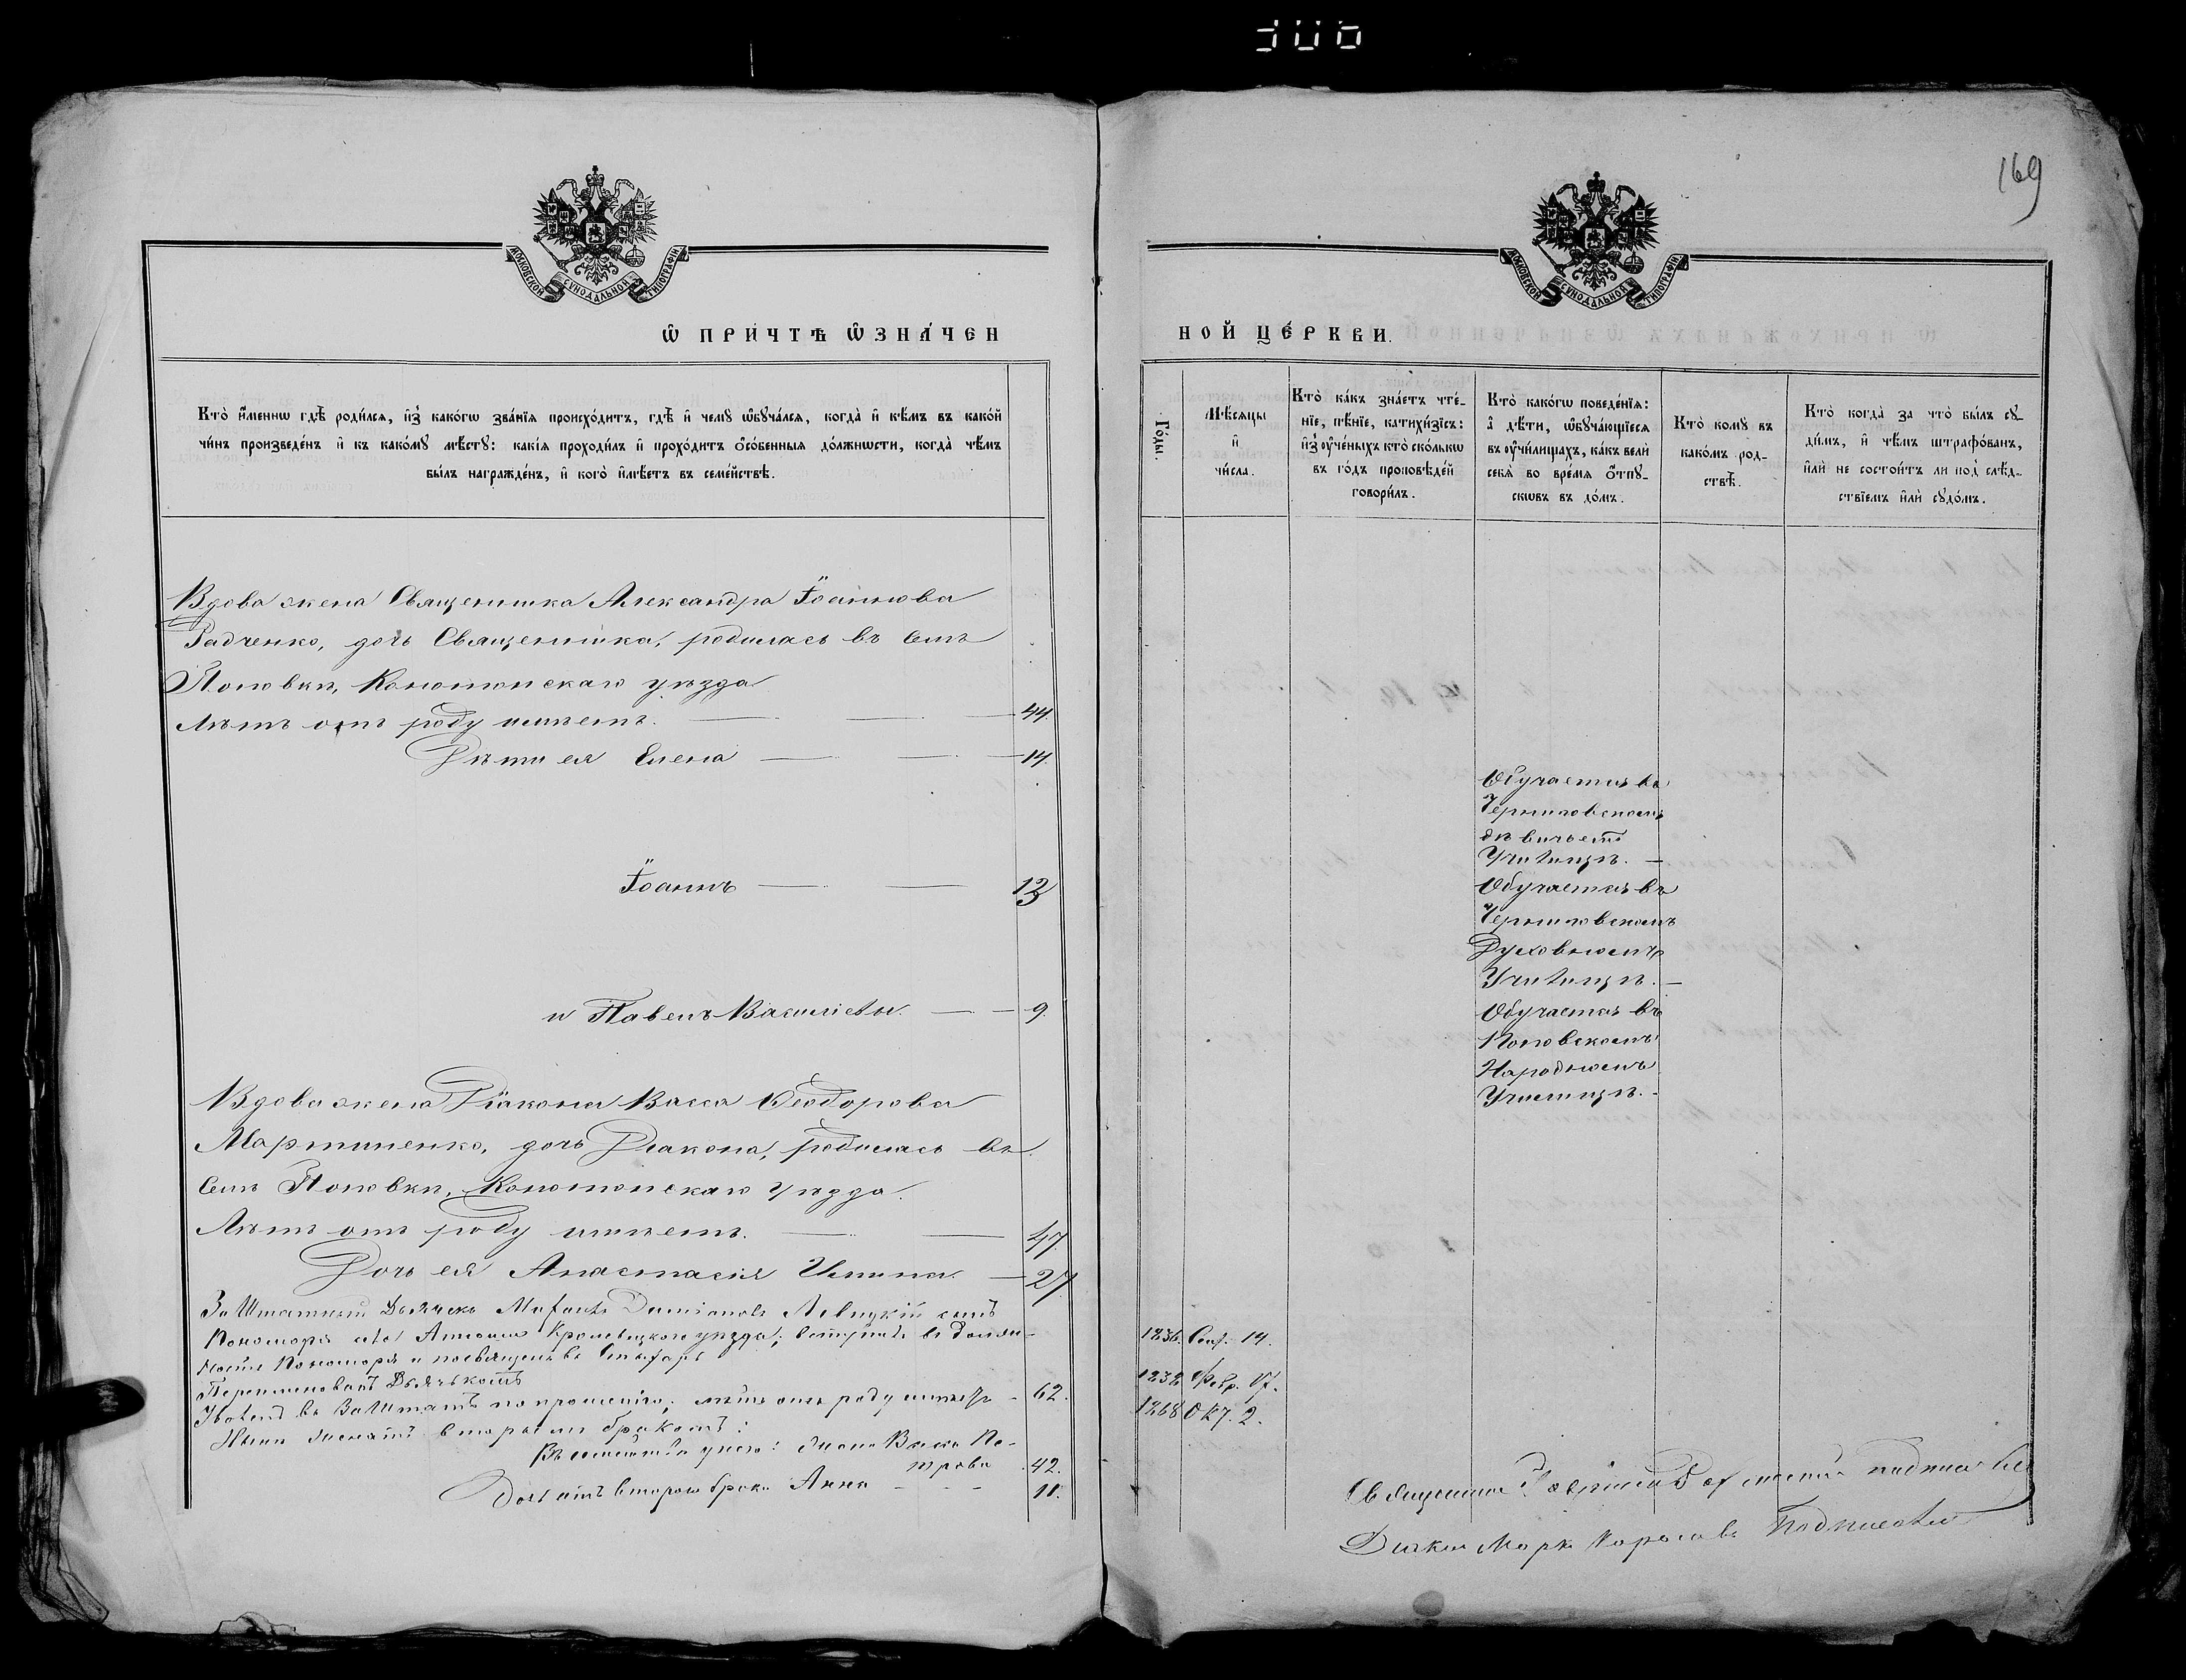 306
169
МОСКОВСКОЙ СѴНОДАЛЬНОЙ ТИПОГРАФІИ
МОСКОВСКОЙ СѴНОДАЛЬНОЙ ТИПОГРАФІИ
Ѽ ПРИ́ЧТѢ Ѿ́ЗНА́ЧЕН
НОЙ ЦЕ́РКВИ.
Кто̀ и҆́менно гдѣ̀ роди́лсѧ, и҆з̾ како́гѡ зва́нїѧ происхо́дитъ, гдѣ̀ и҆ чемꙋ̀ ѡ҆бꙋча́лсѧ, когда̀ и҆ кѣ́мъ въ како́й
чи́нъ произведе́нъ и҆ къ како́мꙋ мѣ́стꙋ: какі́ѧ проходи́лъ и҆ прохо́дитъ ѻ҆со́бенныѧ до́лжности, когда̀ чѣ́мъ
бы́лъ награжде́нъ, и҆ кого̀ и҆мѣ́етъ въ семе́йствѣ.
Го́ды.
Мѣ́сѧцы
и҆
чи́сла.
Кто̀ ка́къ зна́етъ чте́-
нїе, пѣ́нїе, катихи́зїсъ:
и҆з̾ ᲂу҆че́ныхъ кто̀ ско́лькѡ
въ го́дъ проповѣ́дей
говори́лъ.
Кто̀ како́гѡ поведе́нїѧ:
а҆ дѣ́ти, ѡ҆бꙋча́ющїесѧ
въ ᲂу҆чи́лищахъ, ка́къ велѝ
себѧ̀ во вре́мѧ ѻ҆́тпꙋ-
сковъ въ до́мъ.
Кто̀ комꙋ̀ въ
како́мъ род-
ствѣ̀.
Кто̀ когда̀ за что̀ бы́лъ сꙋ-
ди́мъ, и҆ чѣ́мъ штрафо́ванъ,
и҆лѝ не состои́тъ ли под̾ слѣ́д-
ствїемъ и҆лѝ сꙋдо́мъ.
Вдова жена Священника Александра Іоаннова
Радченко, дочь Священника, родилась въ селѣ
Поповкѣ, Конотопскаго уѣзда
Лѣтъ отъ роду имѣетъ. — 44.
Дѣти ея Елена — 14.
Обучается въ
Черниговскомъ
дѣвичьемъ
Училищѣ. —
Іоаннъ — 13
Обучается въ
Черниговскомъ
Духовномъ
Училищѣ. —
и Павелъ Васильевы. — 9.
Обучается въ
Поповскомъ
Народномъ
Училищѣ. -
Вдова жена Діакона Васса Ѳеодорова
Мартиненко, дочь Діакона, родилась въ
селѣ Поповкѣ, Конотопскаго уѣзда.
Лѣтъ отъ роду имѣетъ. — 47.
Дочь ея Анастасія Ильина. — 27
Заштатный Дьячекъ Даміановъ Левицкій сынъ
Пономаря Кролевецкаго уѣзда; вступилъ въ долж-
ность Пономаря и посвященъ въ Стихарь 1836. Сент. 14.
Переименованъ Дьячькомъ Февр. 17.
Уволенъ въ Заштатъ по прошенію; лѣтъ отъ роду имѣетъ - 62. 1868 Окт. 2.
Нынѣ женатъ вторымъ бракомъ:
Въ семействѣ у него: жена Васса Пе-
трова 42.
Дочь отъ втораго брака Анна - - - 11.
Священникъ подписался
Діаконъ Марко подписался